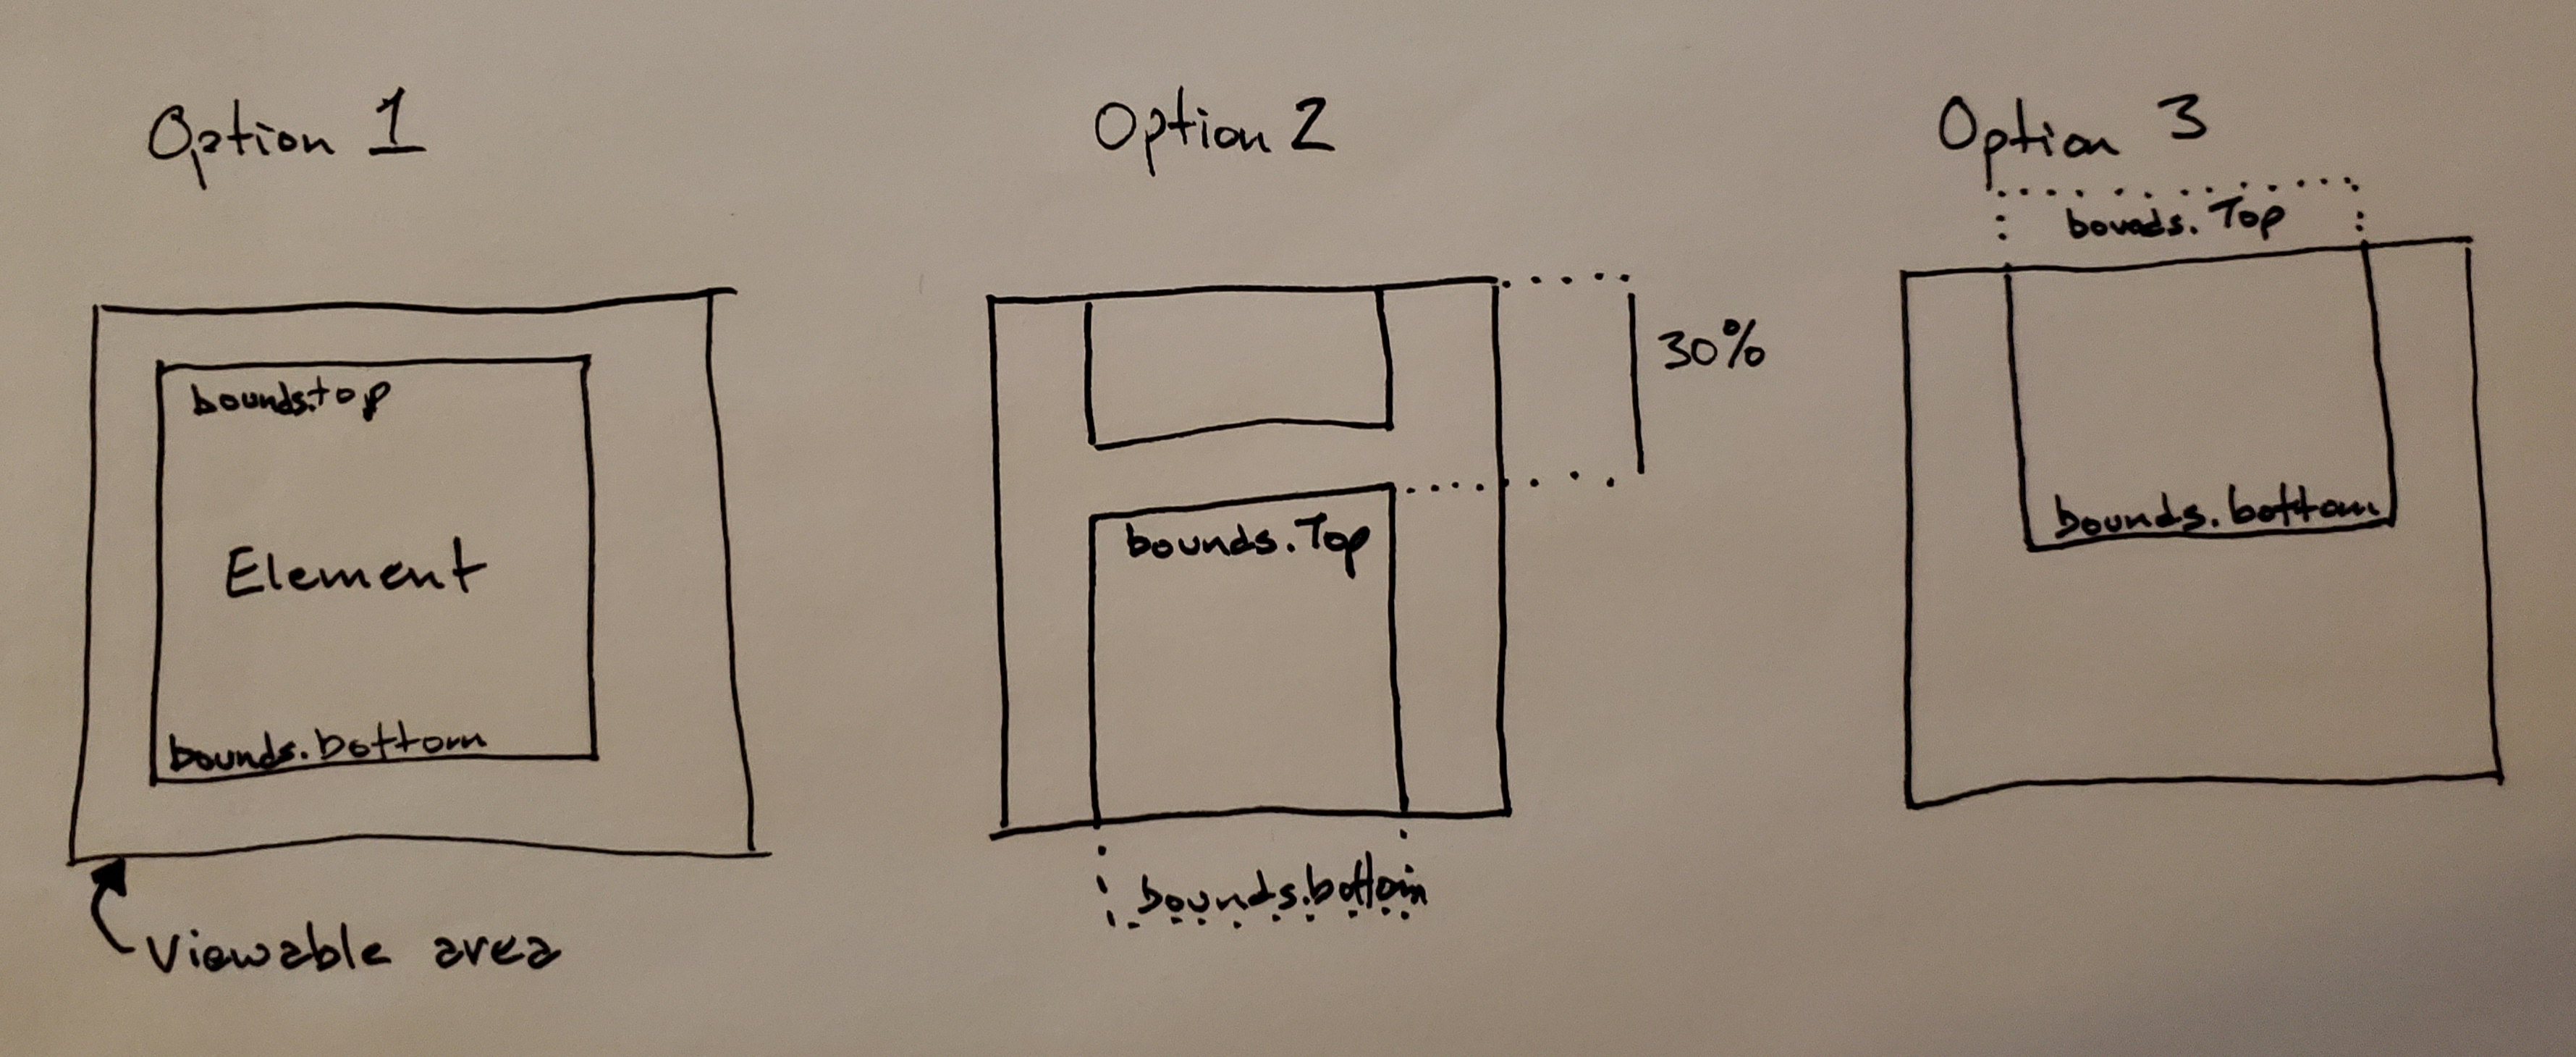 Option 1
bounds.top
Element
bounds.bottom
Viewable area
Option 2
30%
bounds.Top
bounds.bottom
Option 3
bounds. Top
bounds.bottom